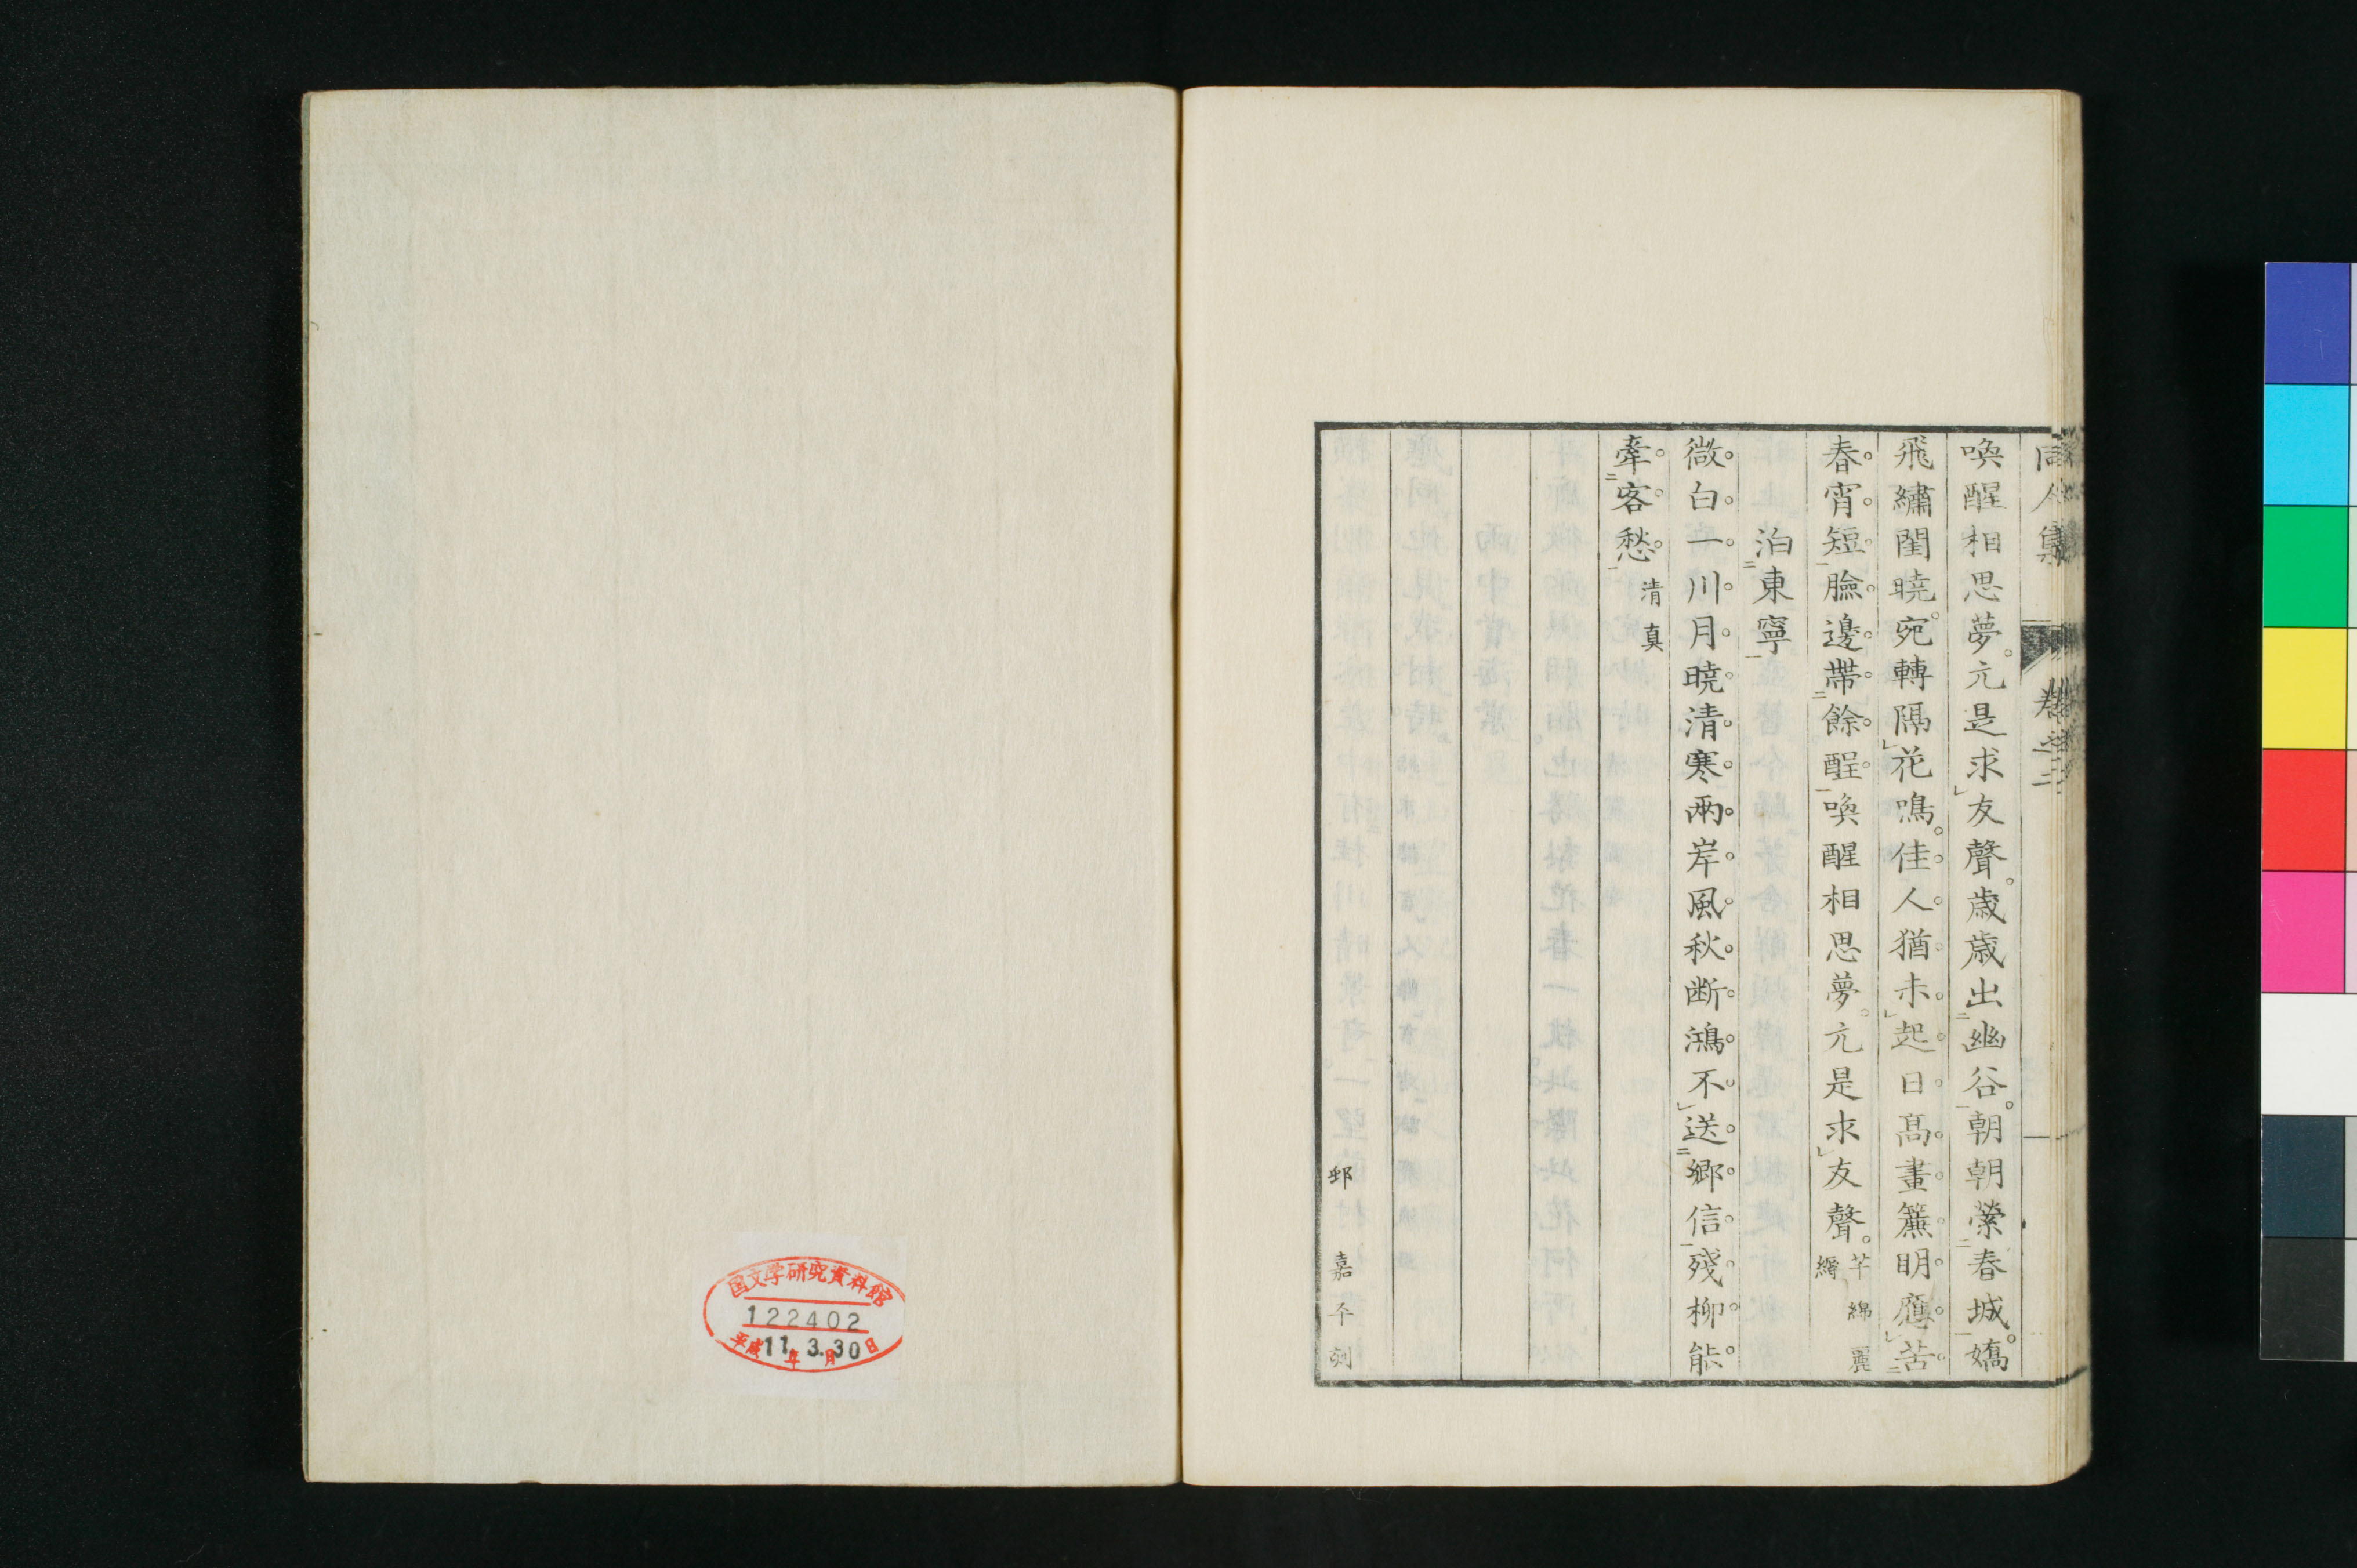 同人集 卷之二
喚醒相思夢。元是求友聲。歲歲出幽谷。朝朝縈春城。嬌
飛繡閨曉。宛轉隔花鳴。佳人猶未起日高畫簾明應苦
春宵短臉邊帶餘酲喚醒相思夢。元是求友聲。芊綿麗縟
泊東寧
微白一川月曉清寒兩岸風秋斷鴻不送鄉信殘柳能
牽客愁 清真
邨嘉平刻
国文学研究資料館
122402
平成11年3月30日